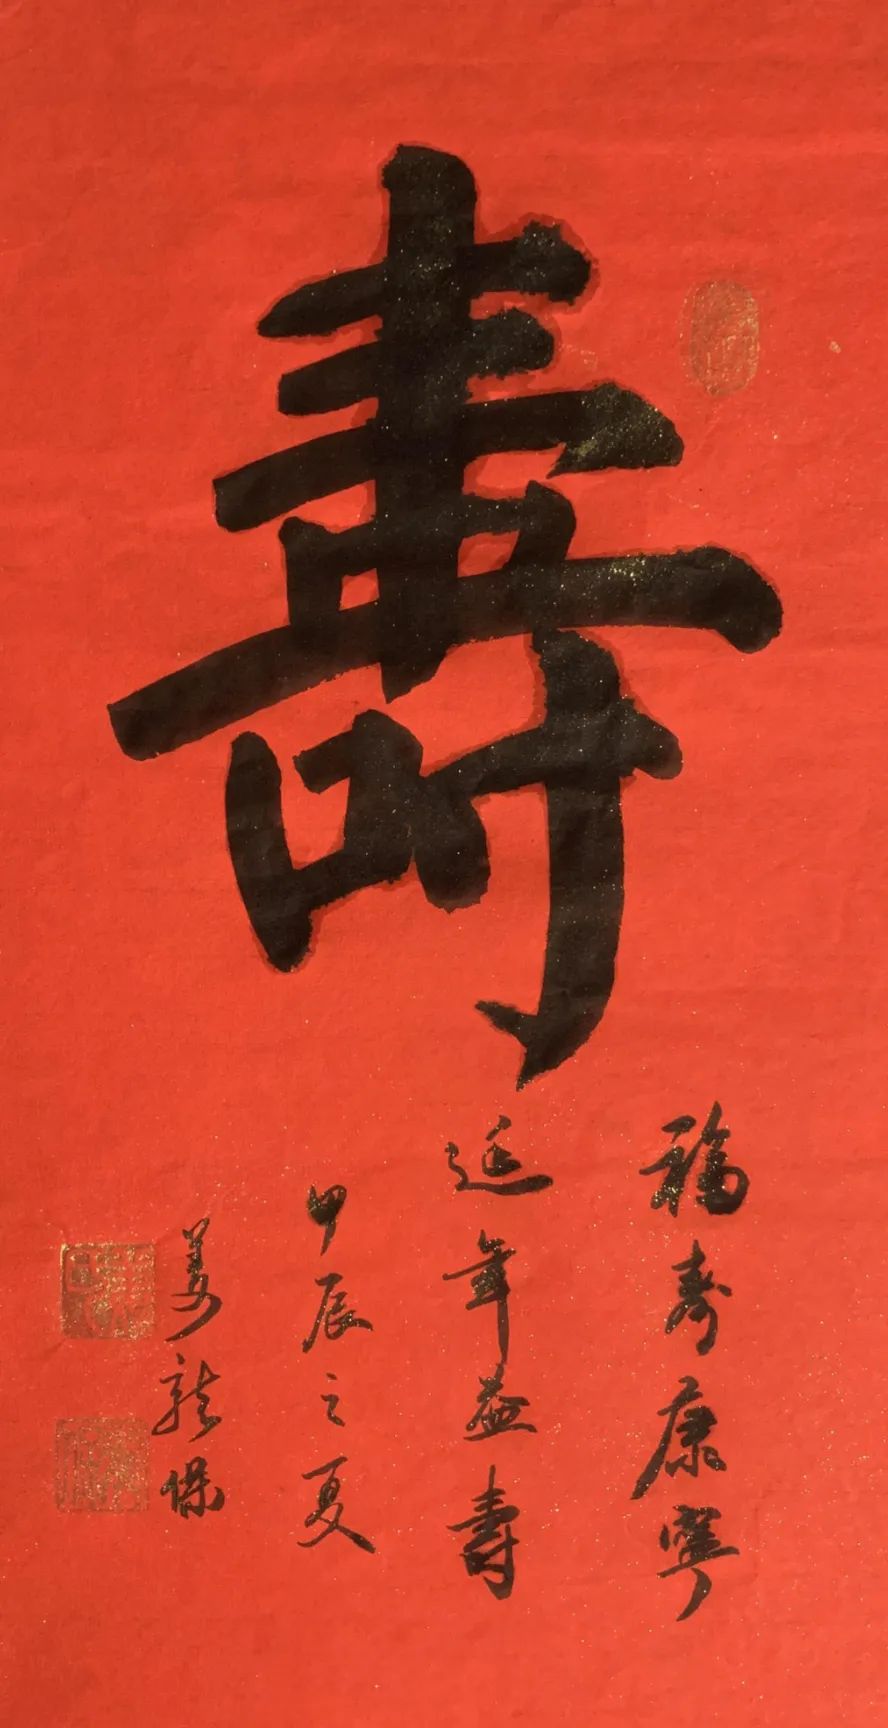 壽
福寿康寧
延年益壽
甲辰之夏
姜龙保